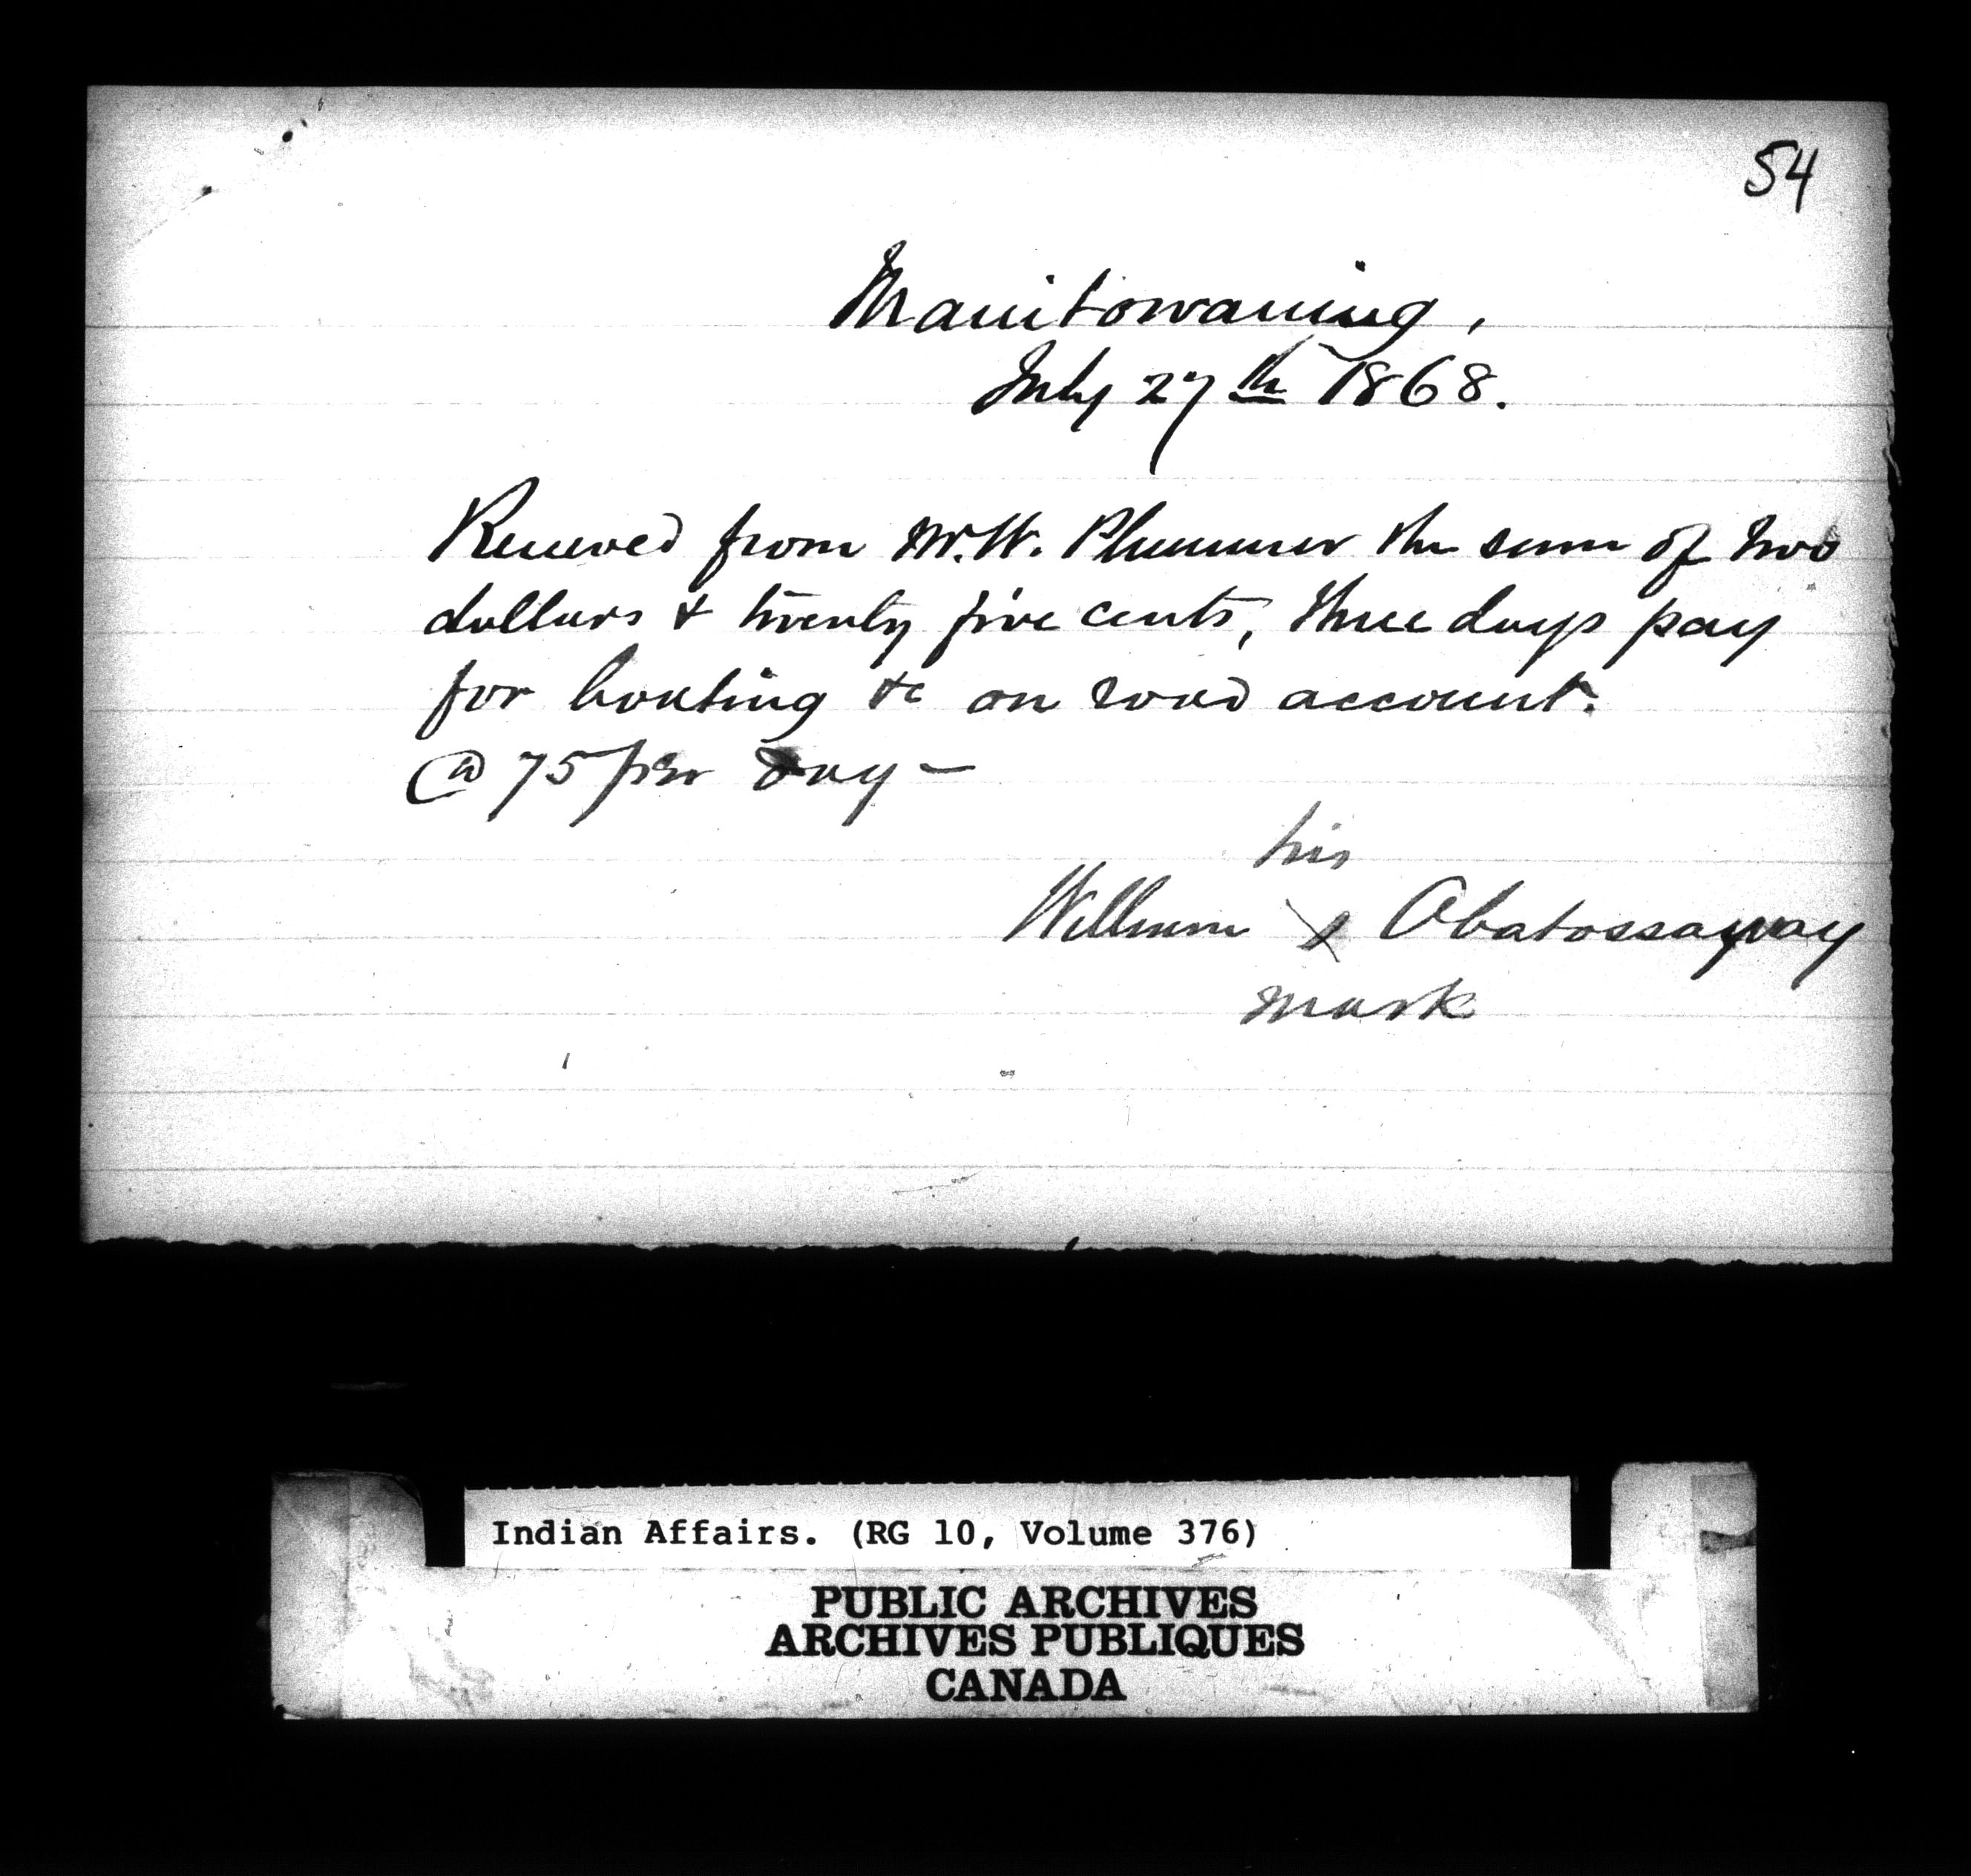 54
Manitowaning,
July 27th 1868.
Received from W. Plummer the sum of two
dollars & twenty five cents, three days pay
for boating &c on road account.
@ 75 per day –
his
William X Abatossaway
mark
Indian Affairs. (RG 10, Volume 376)
PUBLIC ARCHIVES
ARCHIVES PUBLIQUES
CANADA